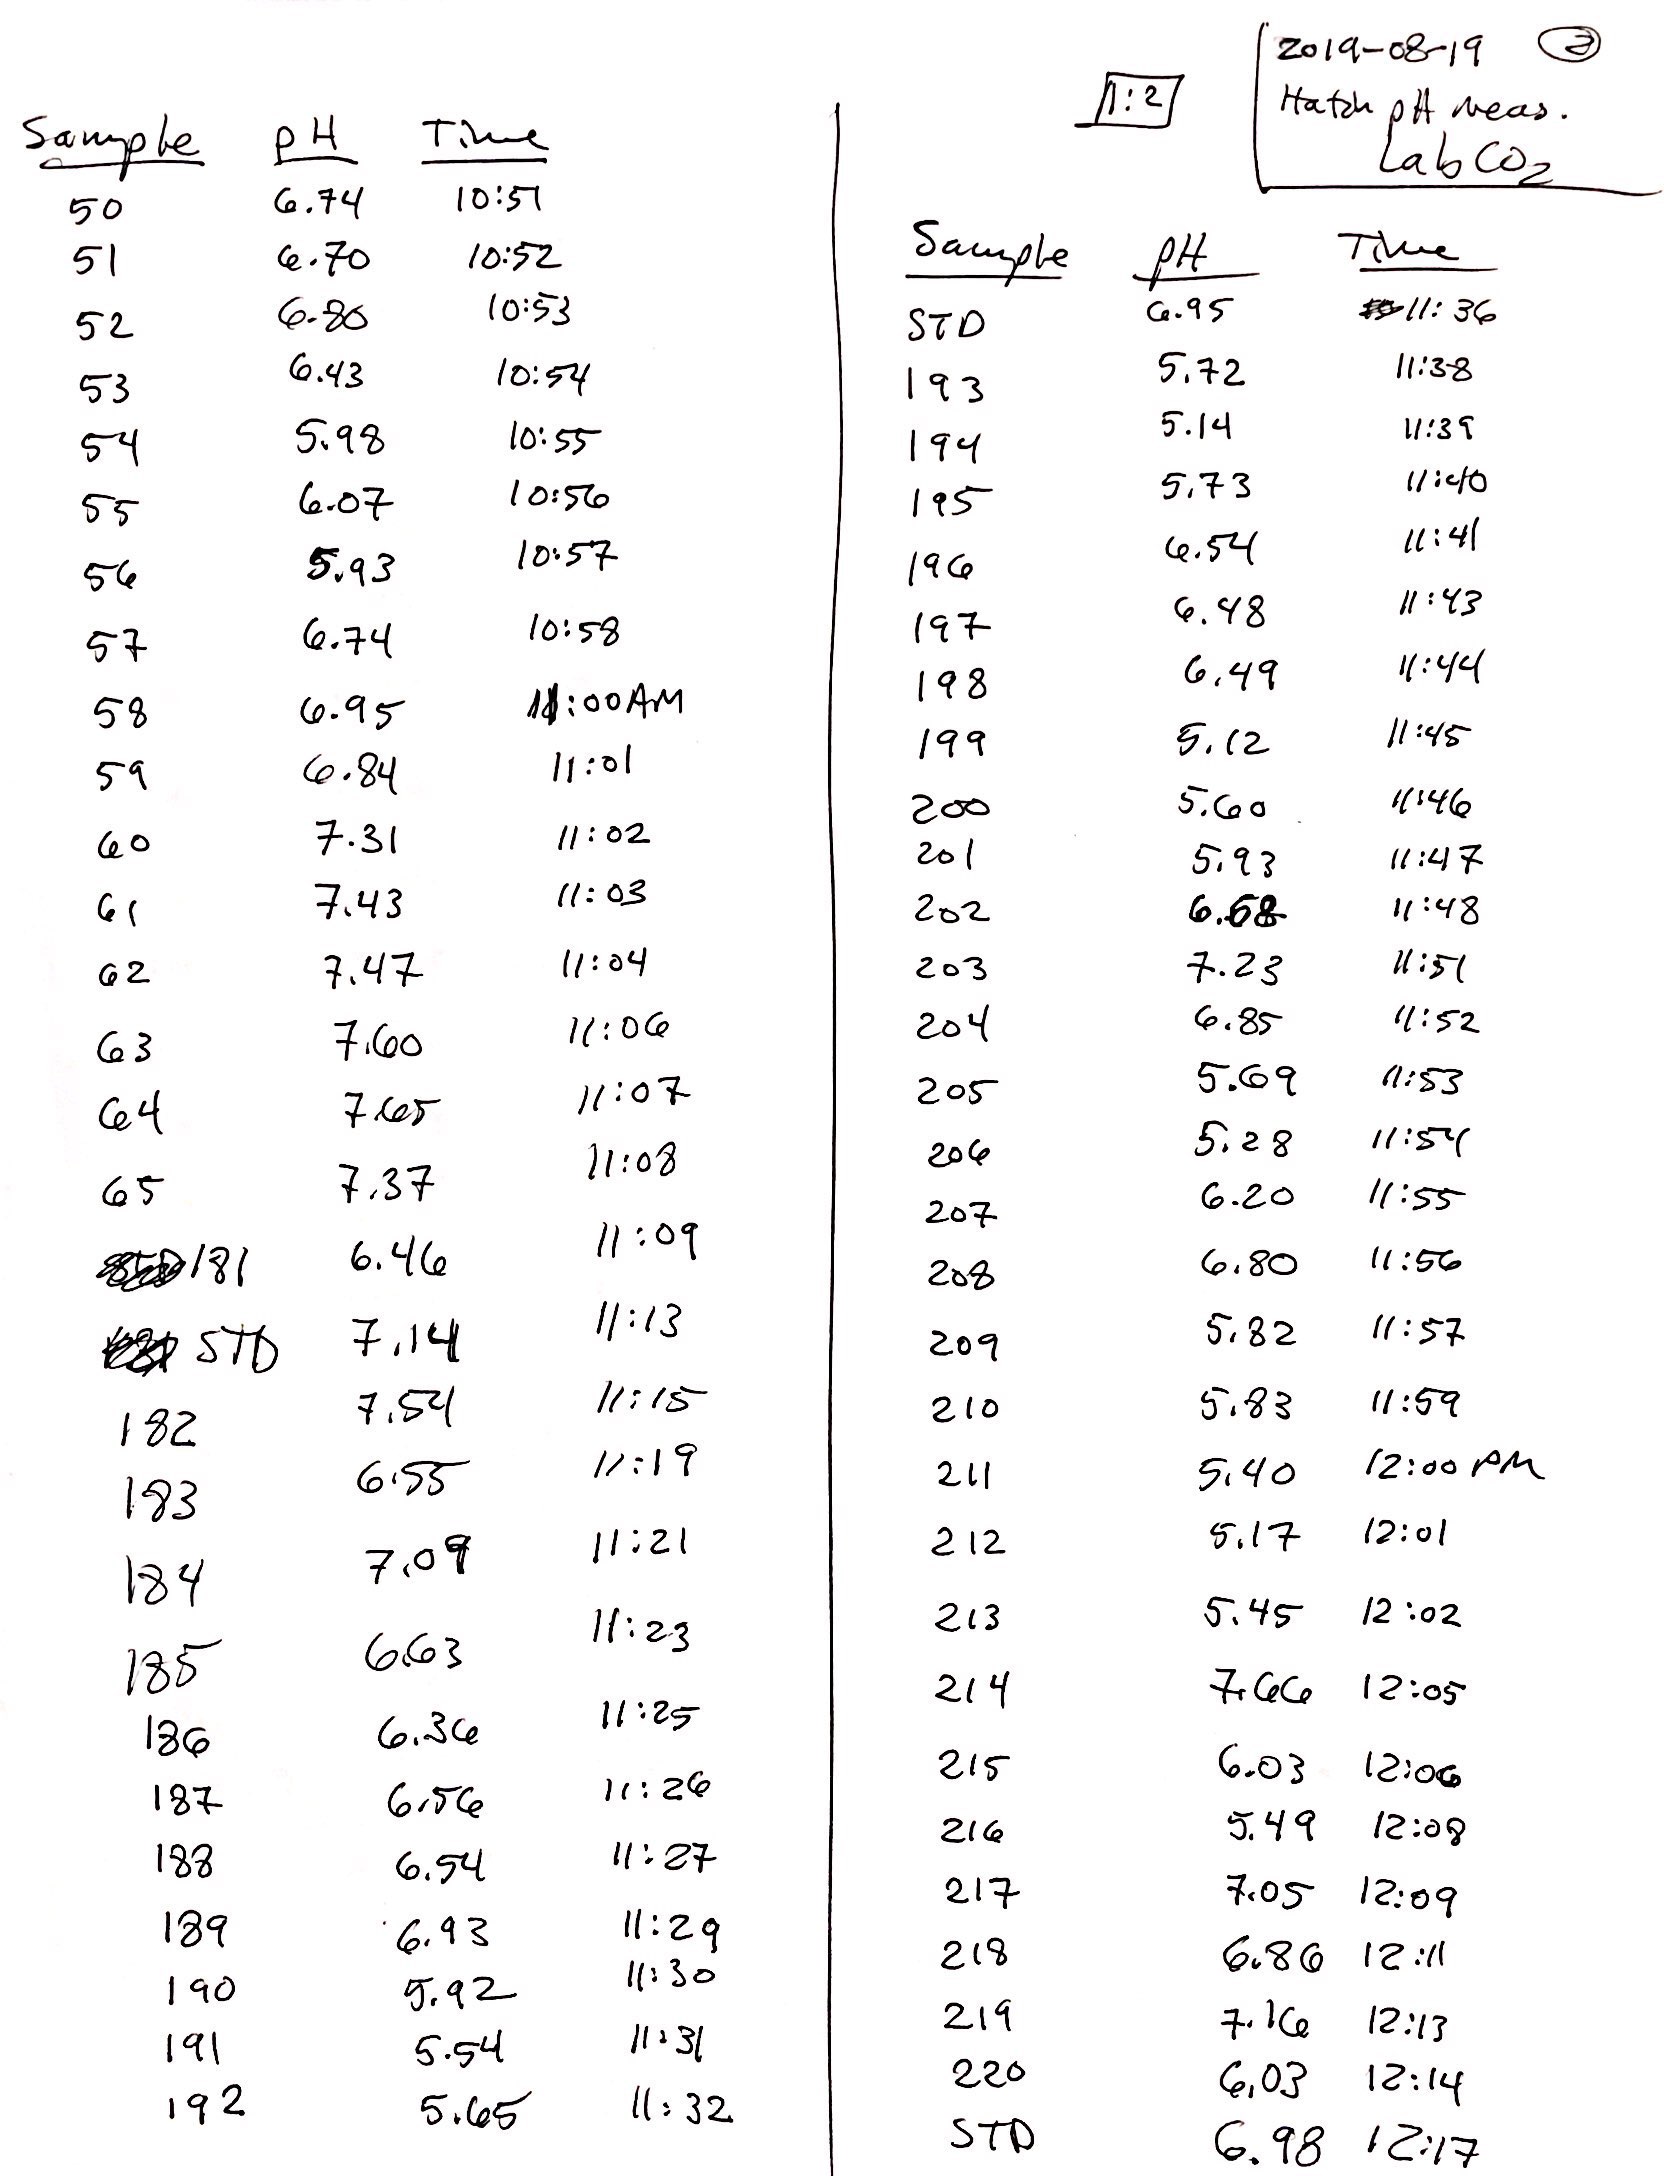 Sample pH Time
50 6.74 10:51
51 6.70 10:52
52 6.80 10:53
53 6.43 10:54
54 5.98 10:55
55 6.07 10:56
56 5.93 10:57
57 6.74 10:58
58 6.95 11:00 AM
59 6.84 11:01
60 7.31 11:02
61 7.43 11:03
62 7.47 11:04
63 7.60 11:06
64 7.65 11:07
65 7.37 11:08
181 6.46 11:09
STD 7.14 11:13
182 7.54 11:15
183 6.55 11:19
184 7.09 11:21
185 6.63 11:23
186 6.36 11:25
187 6.56 11:26
188 6.54 11:27
189 6.93 11:29
190 5.92 11:30
191 5.54 11:31
192 5.65 11:32
1:2
2019-08-19 2
Hatch pH meas.
Lab CO2
Sample pH Time
STD 6.95 11:36
193 5.72 11:38
194 5.14 11:39
195 5.73 11:40
196 6.54 11:41
197 6.48 11:43
198 6.49 11:44
199 5.12 11:45
200 5.60 11:46
201 5.93 11:47
202 6.68 11:48
203 7.23 11:51
204 6.85 11:52
205 5.69 11:53
206 5.28 11:54
207 6.20 11:55
208 6.80 11:56
209 5.82 11:57
210 5.83 11:59
211 5.40 12:00 PM
212 5.17 12:01
213 5.45 12:02
214 7.66 12:05
215 6.03 12:06
216 5.49 12:08
217 7.05 12:09
218 6.86 12:11
219 7.16 12:13
220 6.03 12:14
STD 6.98 12:17